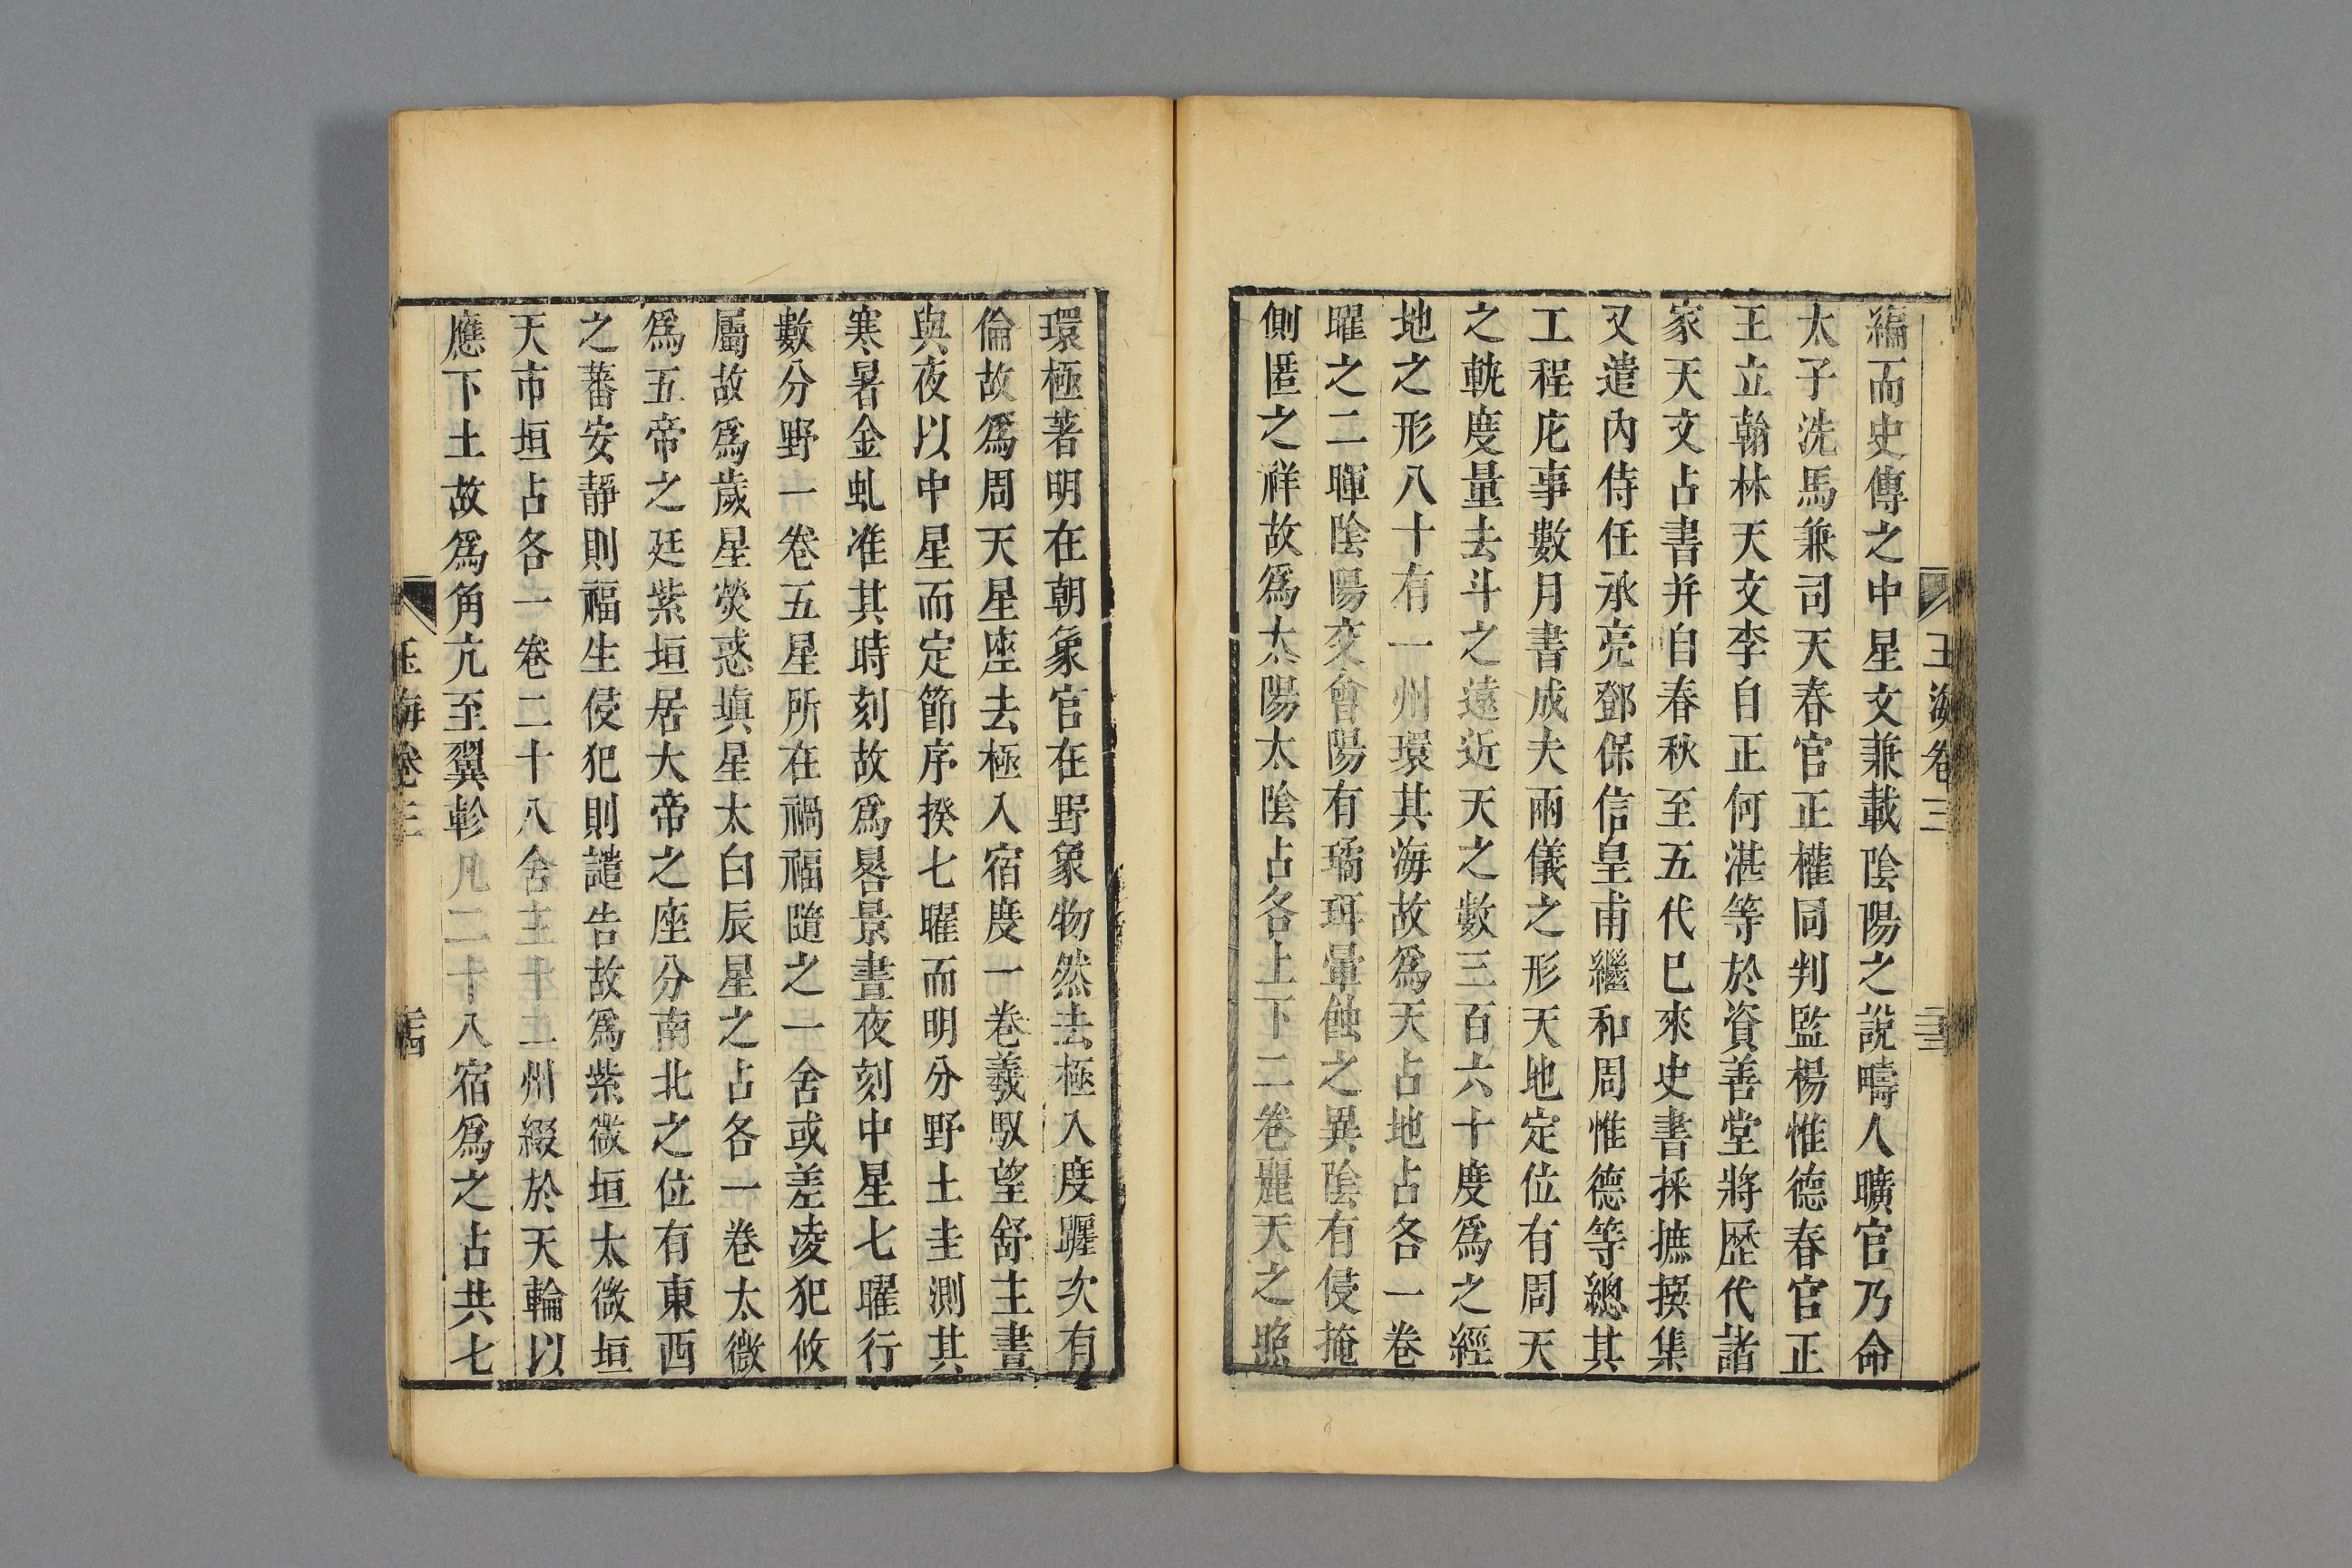 編而史傳之中星文兼載陰陽之說疇人曠官乃命
太子洗馬兼司天春官正權同判監楊惟德春官正
王立翰林天文李自正何湛等於資善堂將歷代諸
家天文占書并自春秋至五代已來史書採摭撰集
又遣內侍任承亮鄧保信皇甫繼和周惟德等總其
工程庀事數月書成夫兩儀之形天地定位有周天
之軌度量去斗之遠近天之數三百六十度爲之經
地之形八十有一州環其海故爲天占地占各一卷
曜之二暉陰陽交會陽有璚珥暈蝕之異陰有侵掩
側匿之祥故爲太陽太陰占各上下二卷麗天之照
玉海卷三
環極著明在朝象官在野象物然去極入度躔次有
倫故爲周天星座去極入宿度一卷羲馭望舒主晝
與夜以中星而定節序揆七曜而明分野土圭測其
寒暑金虬准其時刻故爲晷景晝夜刻中星七曜行
數分野一卷五星所在禍福隨之一舍或差凌犯攸
屬故爲歲星熒惑塡星太白辰星之占各一卷太微
爲五帝之廷紫垣居大帝之座分南北之位有東西
之蕃安靜則福生侵犯則譴告故爲紫微垣太微垣
天市垣占各一卷二十八舍主十二州綴於天輪以
應下土故爲角亢至翼軫凡二十八宿爲之占共七
玉海卷三